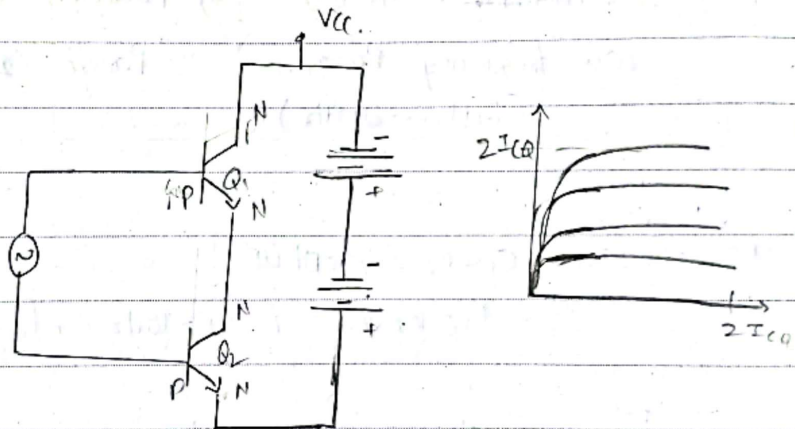 VCC.
N
P
Q1
N
N
P
Q2
N
-
+
-
+
~
2ICQ
2ICQ